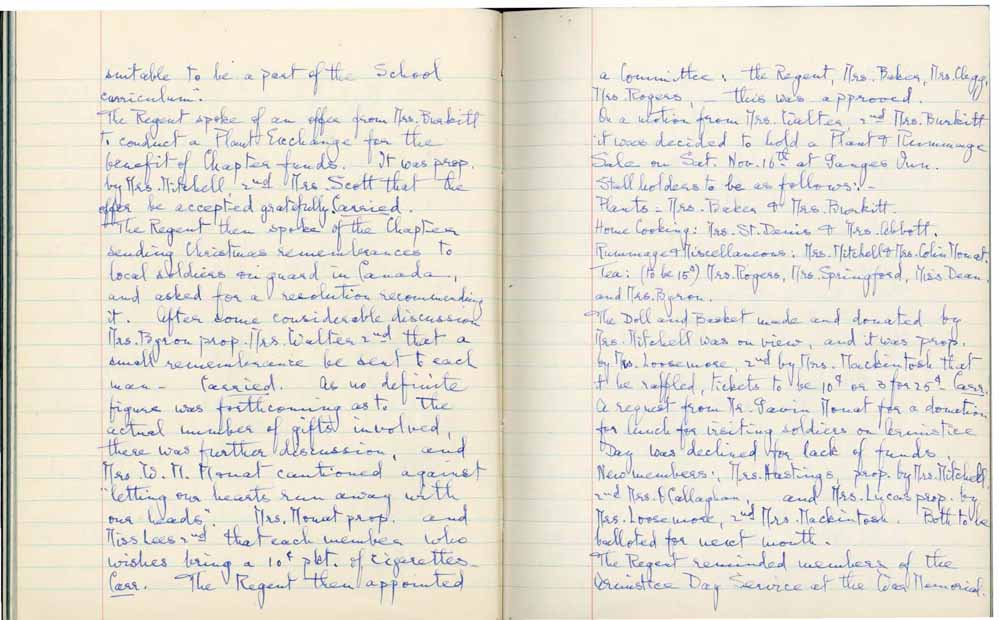 suitable to be a part of the School
curriculum".
The Regent spoke of an offer from Mrs. Burkitt
to conduct a Plant Exchange for the
benefit of Chapter funds. It was prop.
by Mrs. Mitchell, 2nd Mrs. Scott that the
offer be accepted gratefully. Carried.
The Regent then spoke of the Chapter
sending Christmas remembrances to
local soldiers on guard in Canada,
and asked for a resolution recommending
it. After some considerable discussion
Mrs. Byron prop. Mrs. Walter 2nd that a
small remembrance be sent to each
man - Carried. As no definite
figure was forthcoming as to the
actual number of gifts involved,
there was further discussion, and
Mrs. W. M. Mouat cautioned against
"letting our hearts run away with
our heads". Mrs. Mouat prop. and
Miss Lees 2nd that each member who
wishes bring a 10¢ pkt. of cigarettes -
Carr. The Regent then appointed
a Committee: the Regent, Mrs. Baker, Mrs. Clegg,
Mrs. Rogers, - this was approved.
On a motion from Mrs. Walter 2nd Mrs. Burkitt
it was decided to hold a Plant & Rummage
Sale on Sat. Nov. 16th at Ganges Inn.
Stall holders to be as follows: -
Plants - Mrs. Baker & Mrs. Burkitt.
Home Cooking: Mrs. St. Denis & Mrs. Abbott.
Rummage & Miscellaneous: Mrs. Mitchell & Mrs. Colin Mouat.
Tea: (to be 15¢) Mrs. Rogers, Mrs. Springford, Miss Dean
and Mrs. Byron.
The Doll and Basket made and donated by
Mrs. Mitchell was on view, and it was prop.
by Mrs. Loosemore, 2nd by Mrs. Mackintosh that
it be raffled, tickets to be 10¢ or 3 for 25¢ - Carr.
A request from Mr. Gavin Mouat for a donation
for lunch for visiting soldiers on Armistice
Day was declined for lack of funds.
New members: Mrs. Hastings, prop. by Mrs. Mitchell,
2nd Mrs. O'Callaghan, and Mrs. Lucas prop. by
Mrs. Loosemore, 2nd Mrs. Mackintosh. Both to be
balloted for next month.
The Regent reminded members of the
Armistice Day Service at the War Memorial.